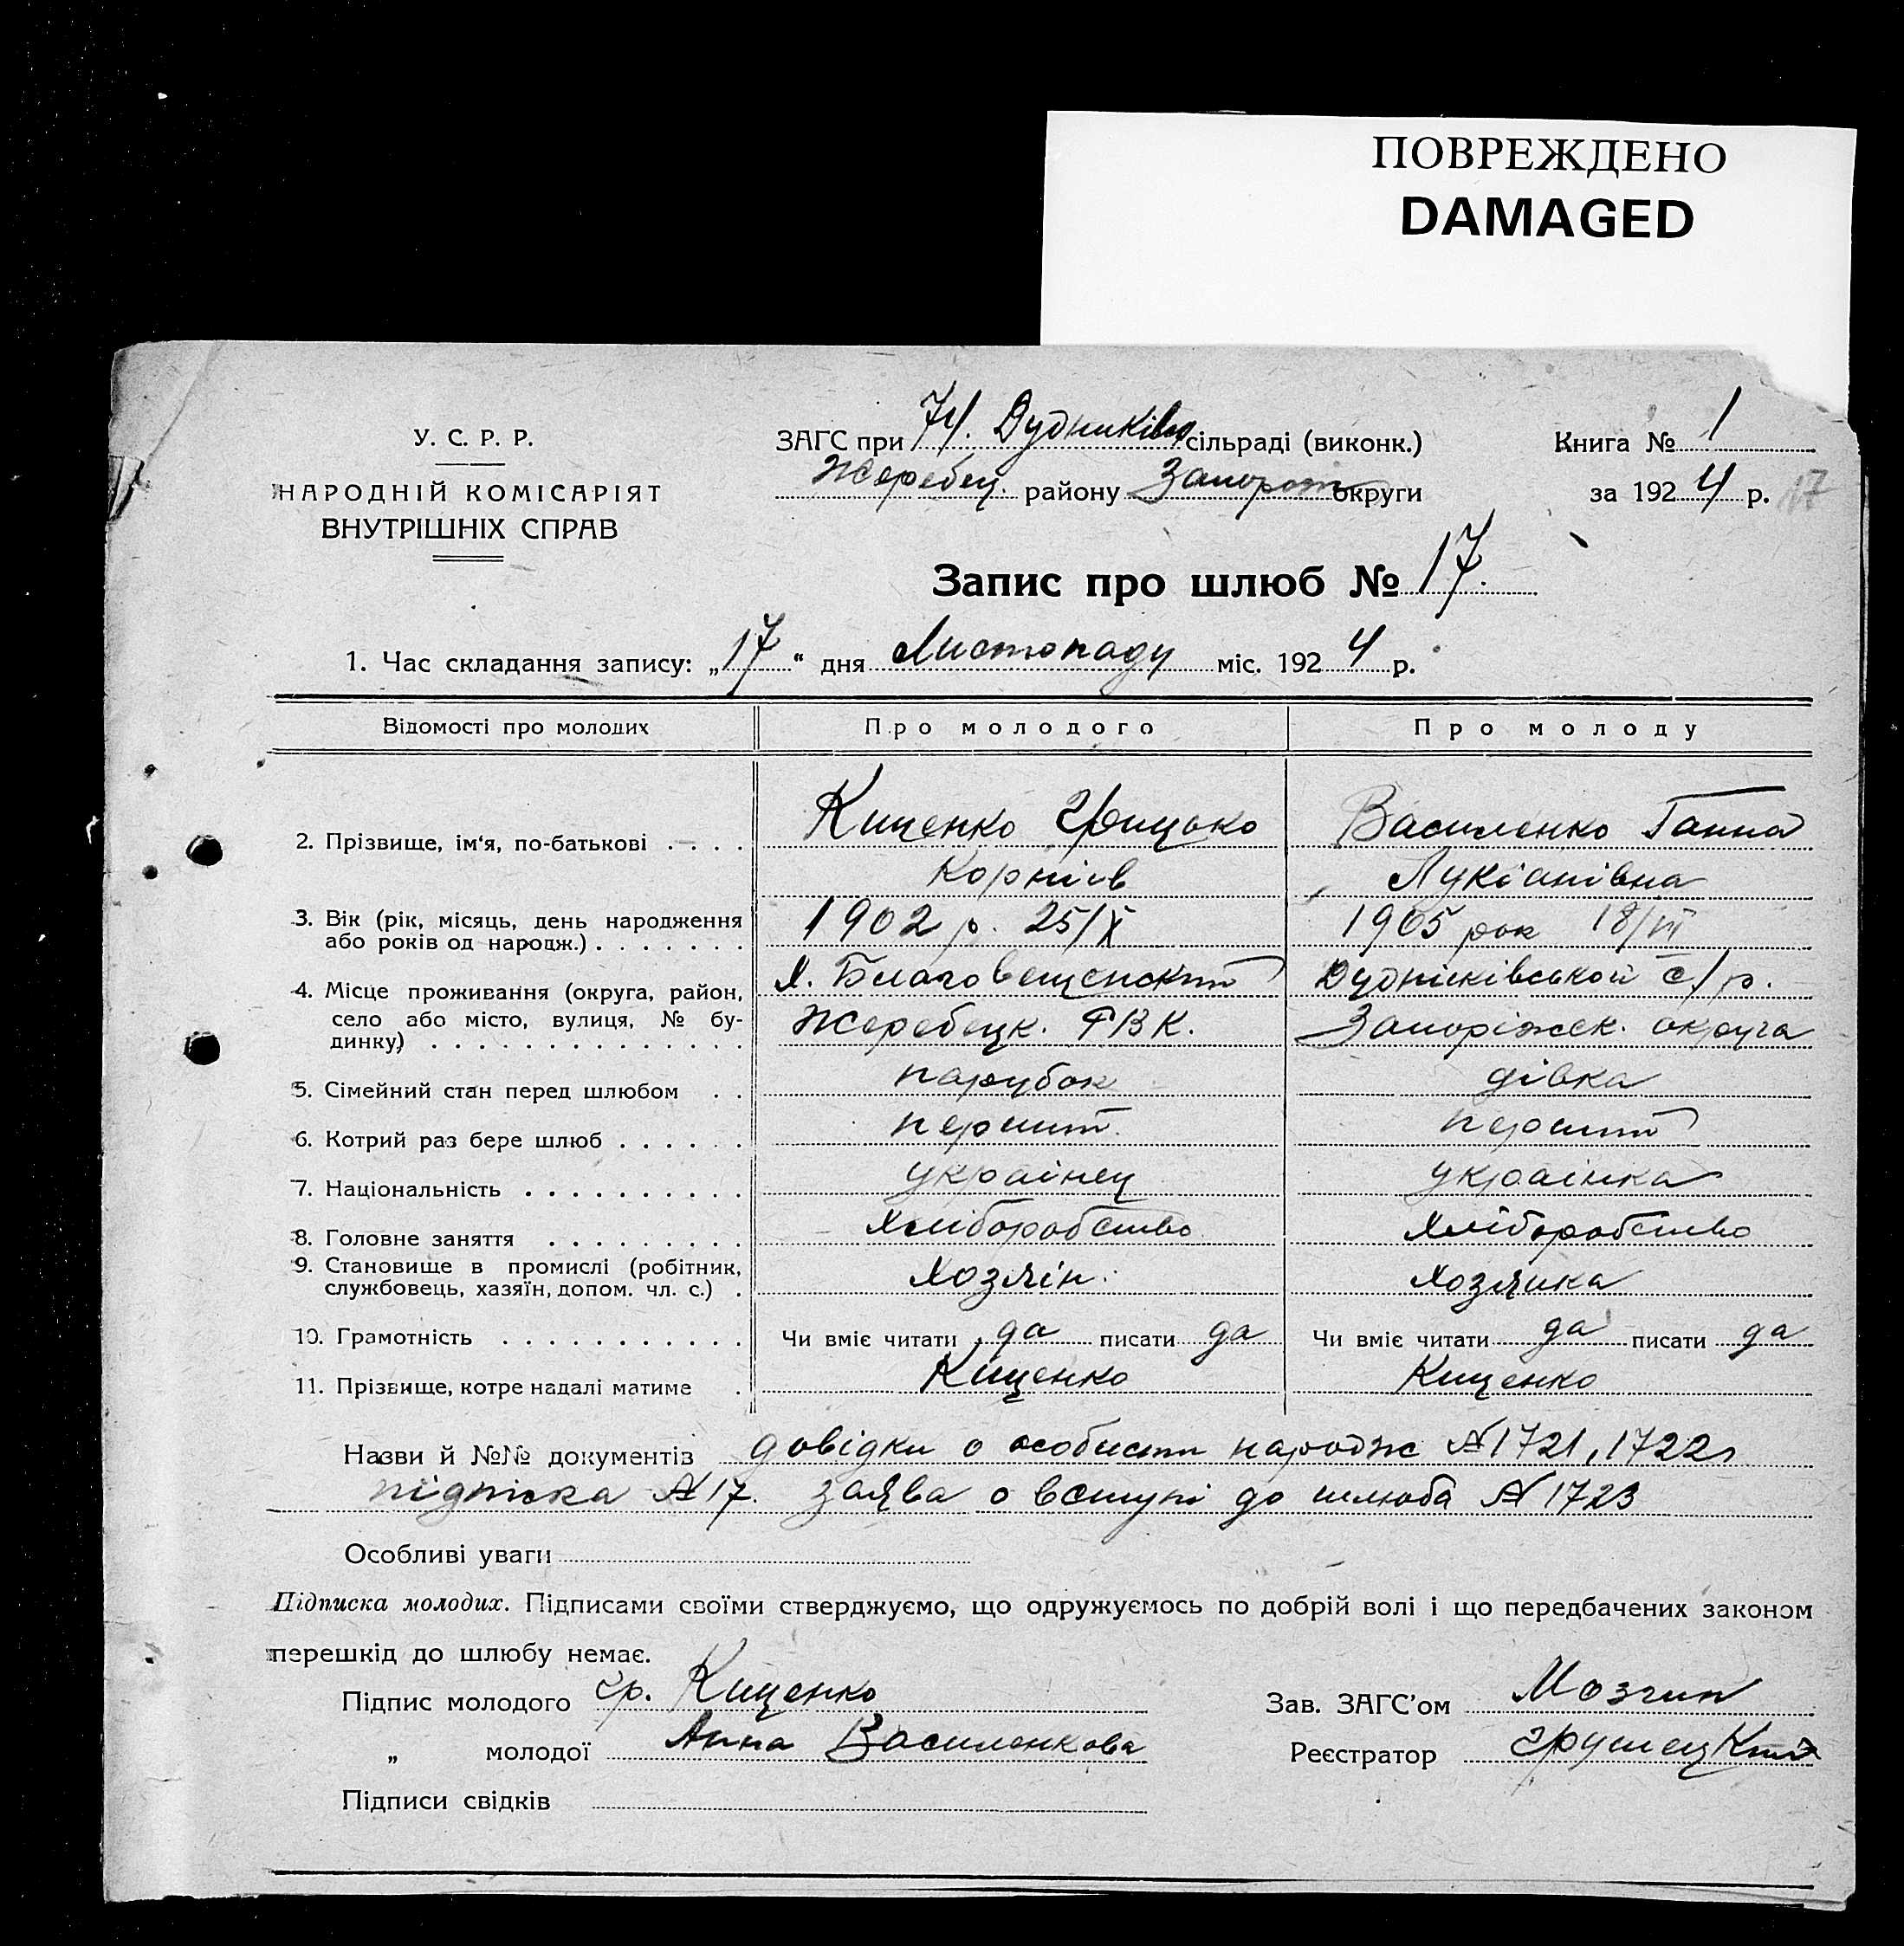 ПОВРЕЖДЕНО
DAMAGED
У. С. Р. Р.
НАРОДНІЙ КОМІСАРІЯТ
ВНУТРІШНІХ СПРАВ
ЗАГС при 74. Дудників сільраді (виконк.)
Жеребец. району Запорож округи
Книга № 1
за 1924 р. 17
Запис про шлюб № 17.
1. Час складання запису: „17“ дня Листопаду міс. 1924 р.
Відомості про молодих Про молодого Про молоду
2. Прізвище, ім‘я, по-батькові . . . . Киценко Грицько Василенко Ганна
Корніів Лукіанівна
3. Вік (рік, місяць, день народження 1902 р. 25/X 1905 рок 18/VII
або років од народж.) . . . . . . .
4. Місце проживання (округа, район, Х. Благовещенский Дудниківськой с/р.
село або місто, вулиця, № бу- Жеребецк. РВК. Запоріжск. округа
динку) . . . . . . . . . . . . . .
5. Сімейний стан перед шлюбом . . парубок дівка
6. Котрий раз бере шлюб . . . . . . перший перший
7. Національність . . . . . . . . . . украінец украінка
8. Головне заняття . . . . . . . . . Хліборобство Хліборобство
9. Становище в промислі (робітник, Хозяін. Хозяика
службовець, хазяїн, допом. чл. с.) .
10. Грамотність . . . . . . . . . . . Чи вміє читати да писати да Чи вміє читати да писати да
11. Прізвище, котре надалі матиме . Киценко Киценко
Назви й №№ документів довідки о особисти народж №1721, 1722,
підпіска №17. заява о вступі до шлюба №1723
Особливі уваги
Підписка молодих. Підписами своїми стверджуємо, що одружуємось по добрій волі і що передбачених законом
перешкід до шлюбу немає.
Підпис молодого Гр. Киценко Зав. ЗАГС’ом Мозгин
„ молодої Анна Василенкова Реєстратор Грушецкий
Підписи свідків